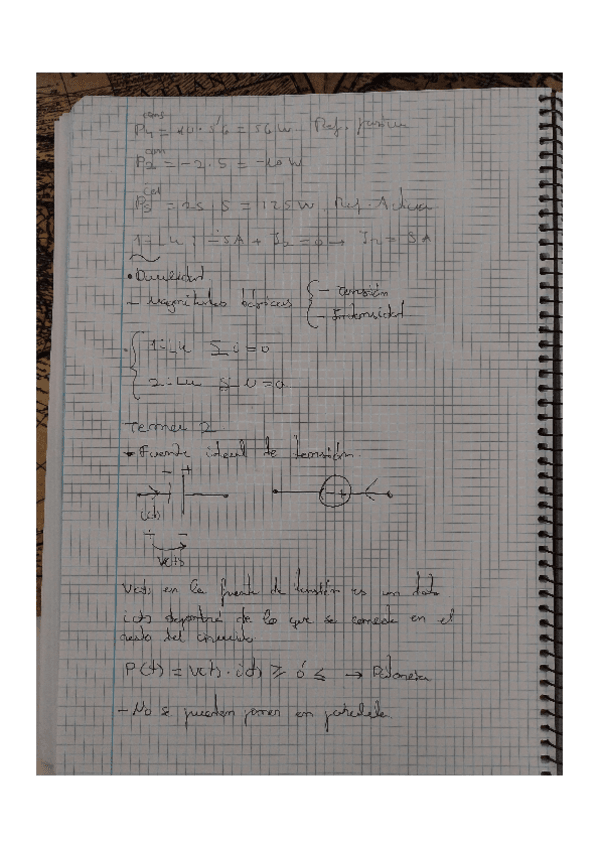 cons
P4 = 10 · 5'6 = 56 W Ref. pasiva
P2 = -2 · 5 = -10 W
P5 = 25 · 5 = 125 W Ref. Activa
1ª Lk: -5A + I2 = 0 → I2 = 5A
• Dualidad
- Magnitudes básicas { - Tensión
- Intensidad
1ª Lk Σ i = 0
2ª Lk Σ U = 0
Tema 2
• Fuente ideal de tensión.
- +
- +
i(t)
+ -
V(t)
V(t) en la fuente de tensión es un dato
i(t) dependrá de lo que se conecte en el
resto del circuito
P(t) = V(t) · i(t) ≥ ó ≤ → Potencia
- No se pueden poner en paralelo